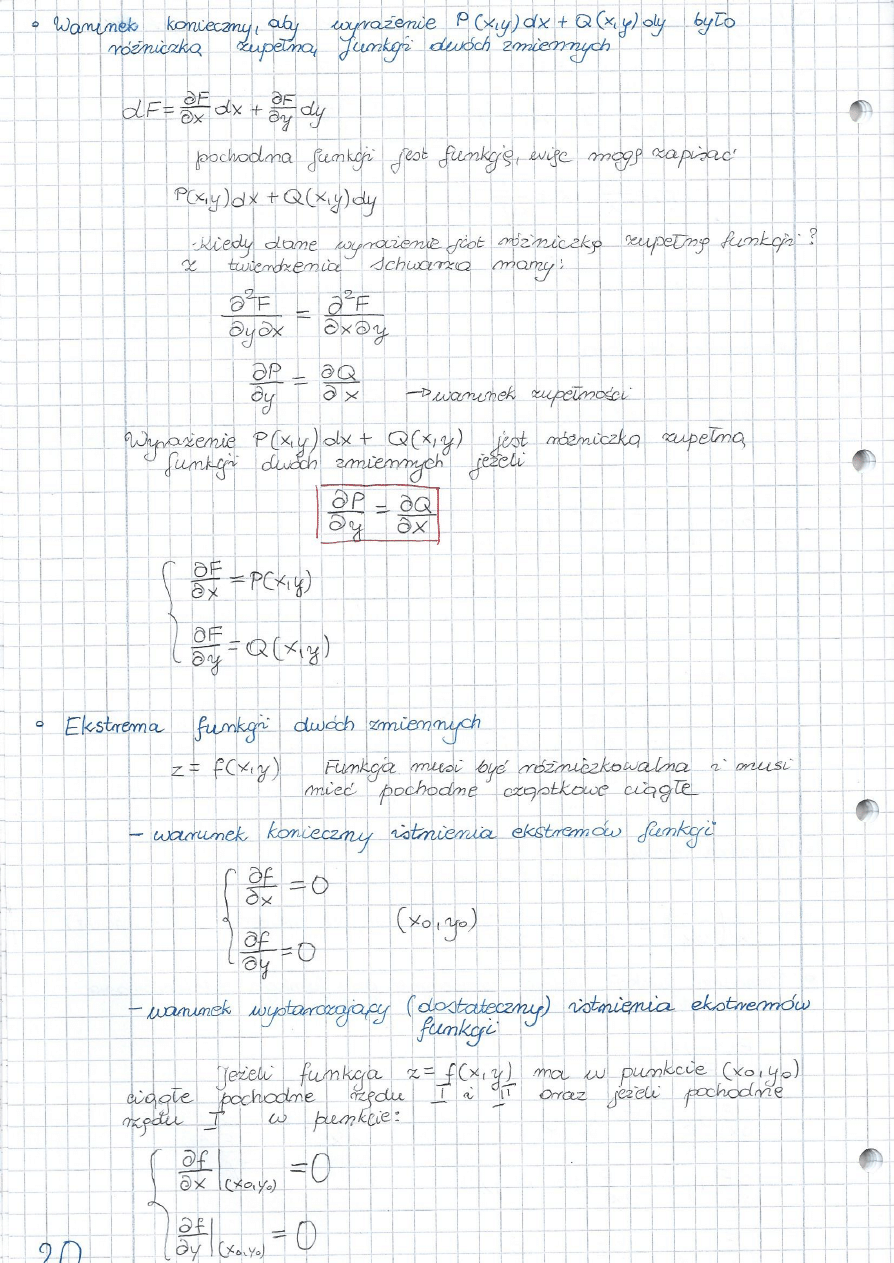 • Warunek konieczny, aby wyrażenie P(x,y)dx + Q(x,y)dy było
różniczką zupełną funkcji dwóch zmiennych
dF = ∂F/∂x dx + ∂F/∂y dy
pochodna funkcji jest funkcją, więc mogę zapisać
P(x,y)dx + Q(x,y)dy
-Kiedy dane wyrażenie jest różniczką zupełną funkcji?
z twierdzenia Schwarza mamy:
∂²F/∂y∂x = ∂²F/∂x∂y
∂P/∂y = ∂Q/∂x → warunek zupełności
Wyrażenie P(x,y)dx + Q(x,y) jest różniczką zupełną
funkcji dwóch zmiennych jeżeli
∂P/∂y = ∂Q/∂x
{ ∂F/∂x = P(x,y)
∂F/∂y = Q(x,y)
• Ekstrema funkcji dwóch zmiennych
z = f(x,y) Funkcja musi być różniczkowalna i musi
mieć pochodne cząstkowe ciągłe
- warunek konieczny istnienia ekstremów funkcji
{ ∂f/∂x = 0
(x₀,y₀)
∂f/∂y = 0
- warunek wystarczający (dostateczny) istnienia ekstremów
funkcji
Jeżeli funkcja z = f(x,y) ma w punkcie (x₀,y₀)
ciągłe pochodne rzędu I i II oraz jeżeli pochodne
rzędu I w punkcie:
{ ∂f/∂x |(x₀,y₀) = 0
∂f/∂y |(x₀,y₀) = 0
20